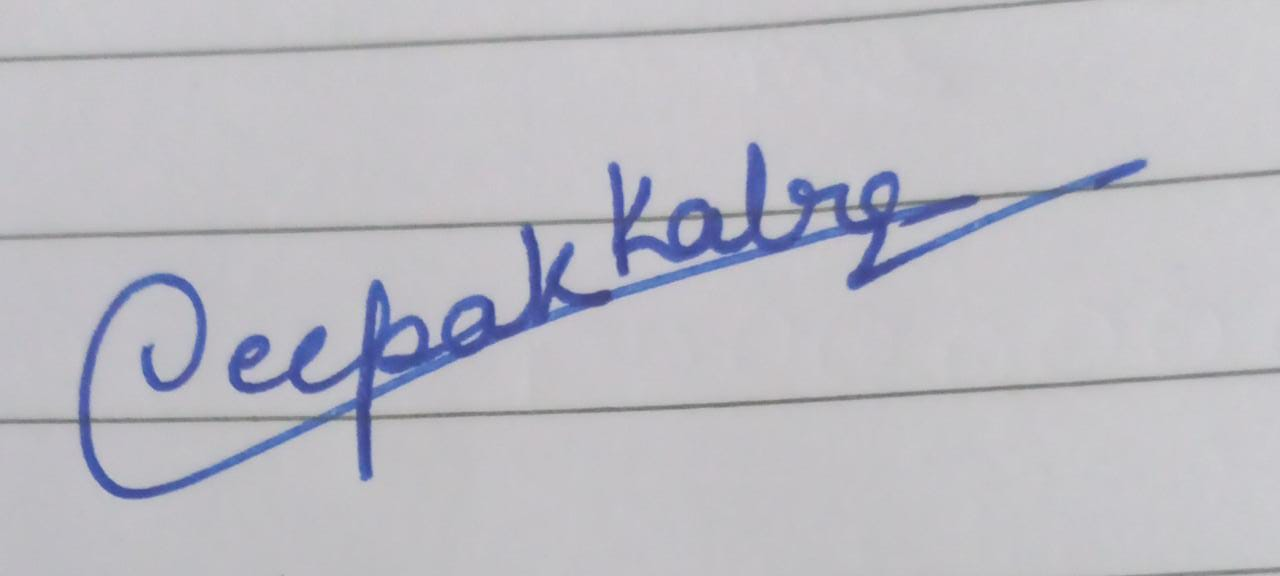 Deepak Kabra